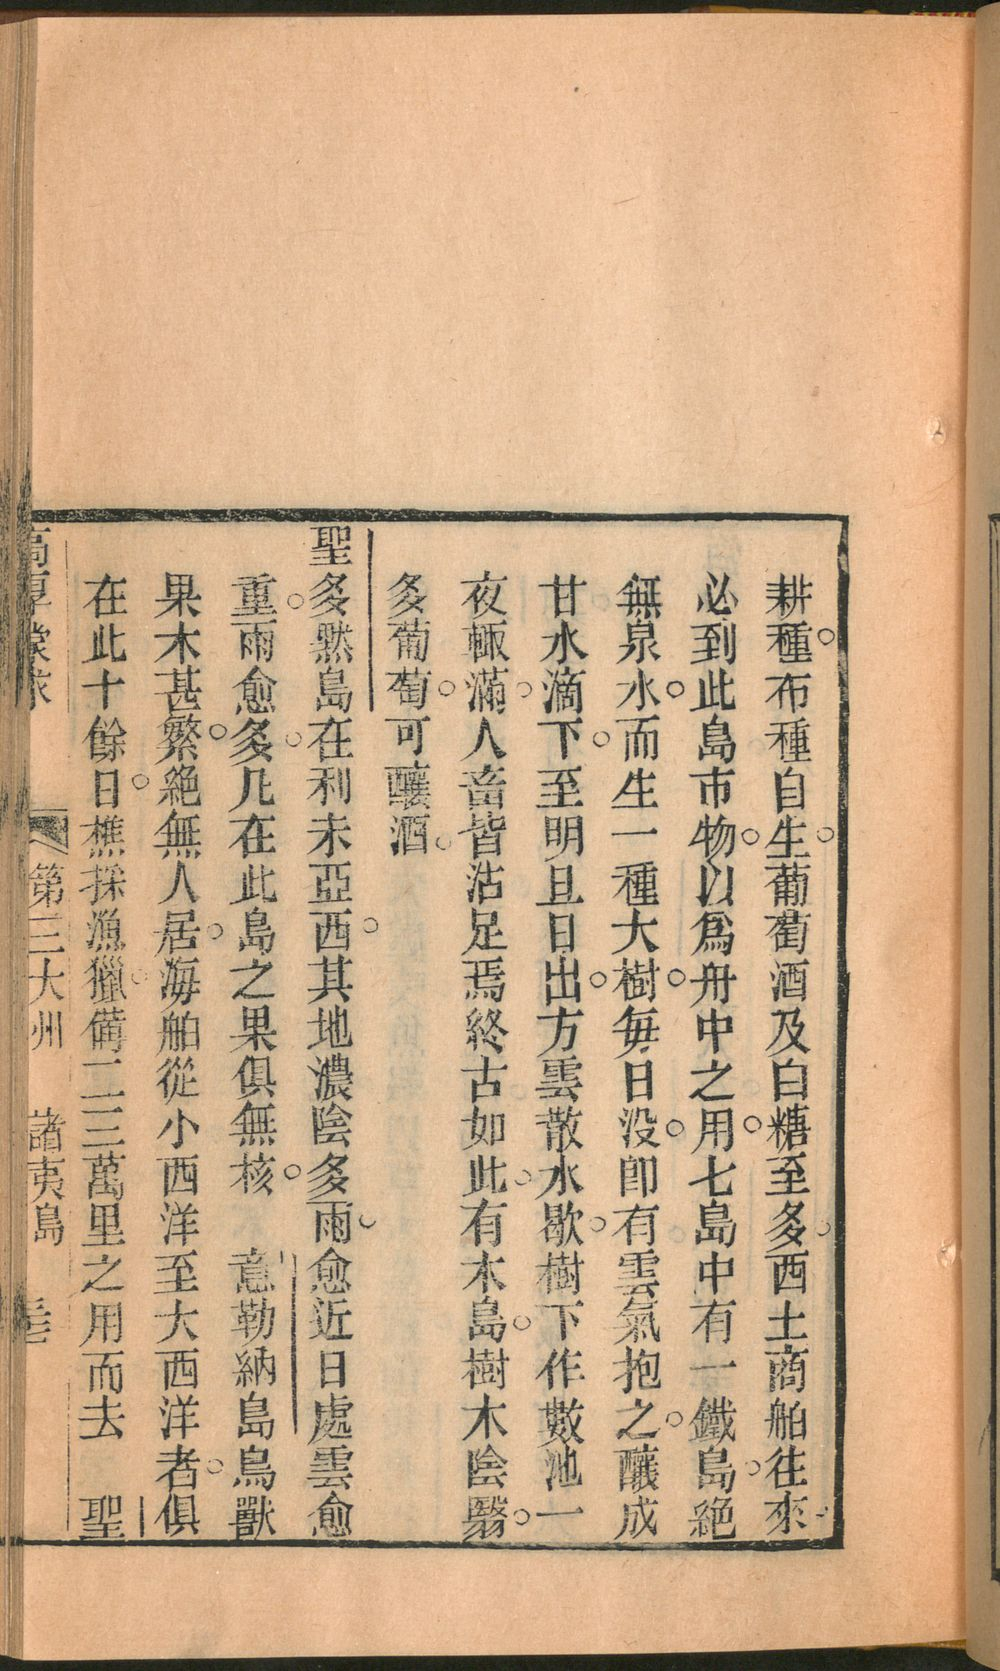 耕種布種自生葡萄酒及白糖至多西土商舶往來
必到此島市物以爲舟中之用七島中有一鐵島絕
無泉水而生一種大樹每日没卽有雲氣抱之釀成
甘水滴下至明旦日出方雲散水歇樹下作數池一
夜輒滿人畜皆沾足焉終古如此有木島樹木陰翳
多葡萄可釀酒
聖多黙島在利未亞西其地濃陰多雨愈近日處雲愈
重雨愈多凡在此島之果俱無核 意勒納島鳥獸
果木甚繁絕無人居海舶從小西洋至大西洋者俱
在此十餘日樵採漁獵備二三萬里之用而去 聖
高厚蒙求 第三大州 諸夷島